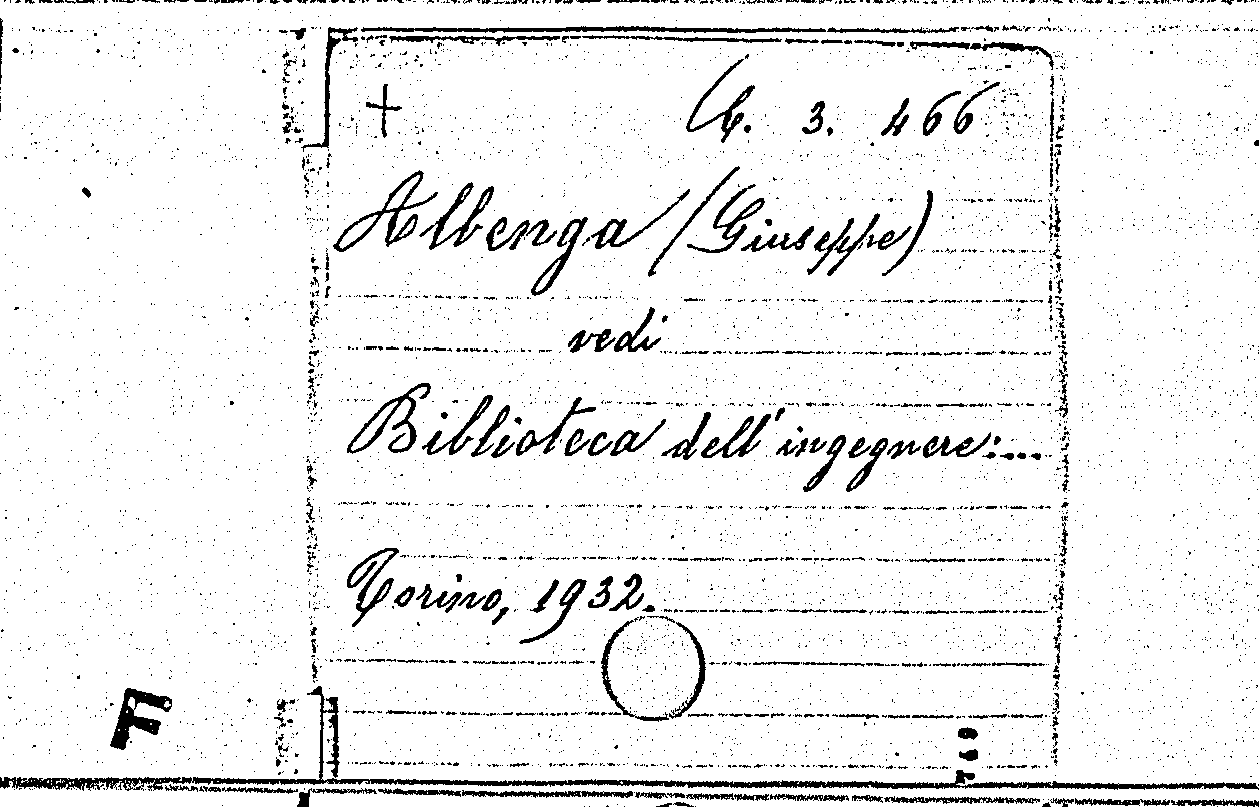 + C. 3. 466
Albenga (Giuseppe)
vedi
Biblioteca dell'ingegnere:...
Torino, 1932.
F